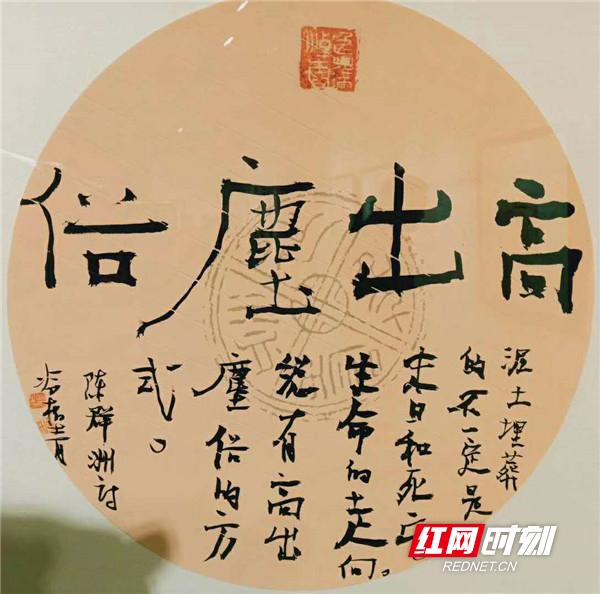 高出塵俗
泥土埋葬
的不一定是
末日和死亡。
生命的走向。
有高出
塵俗的方
式。
陈群洲诗
红网时刻
REDNET.CN